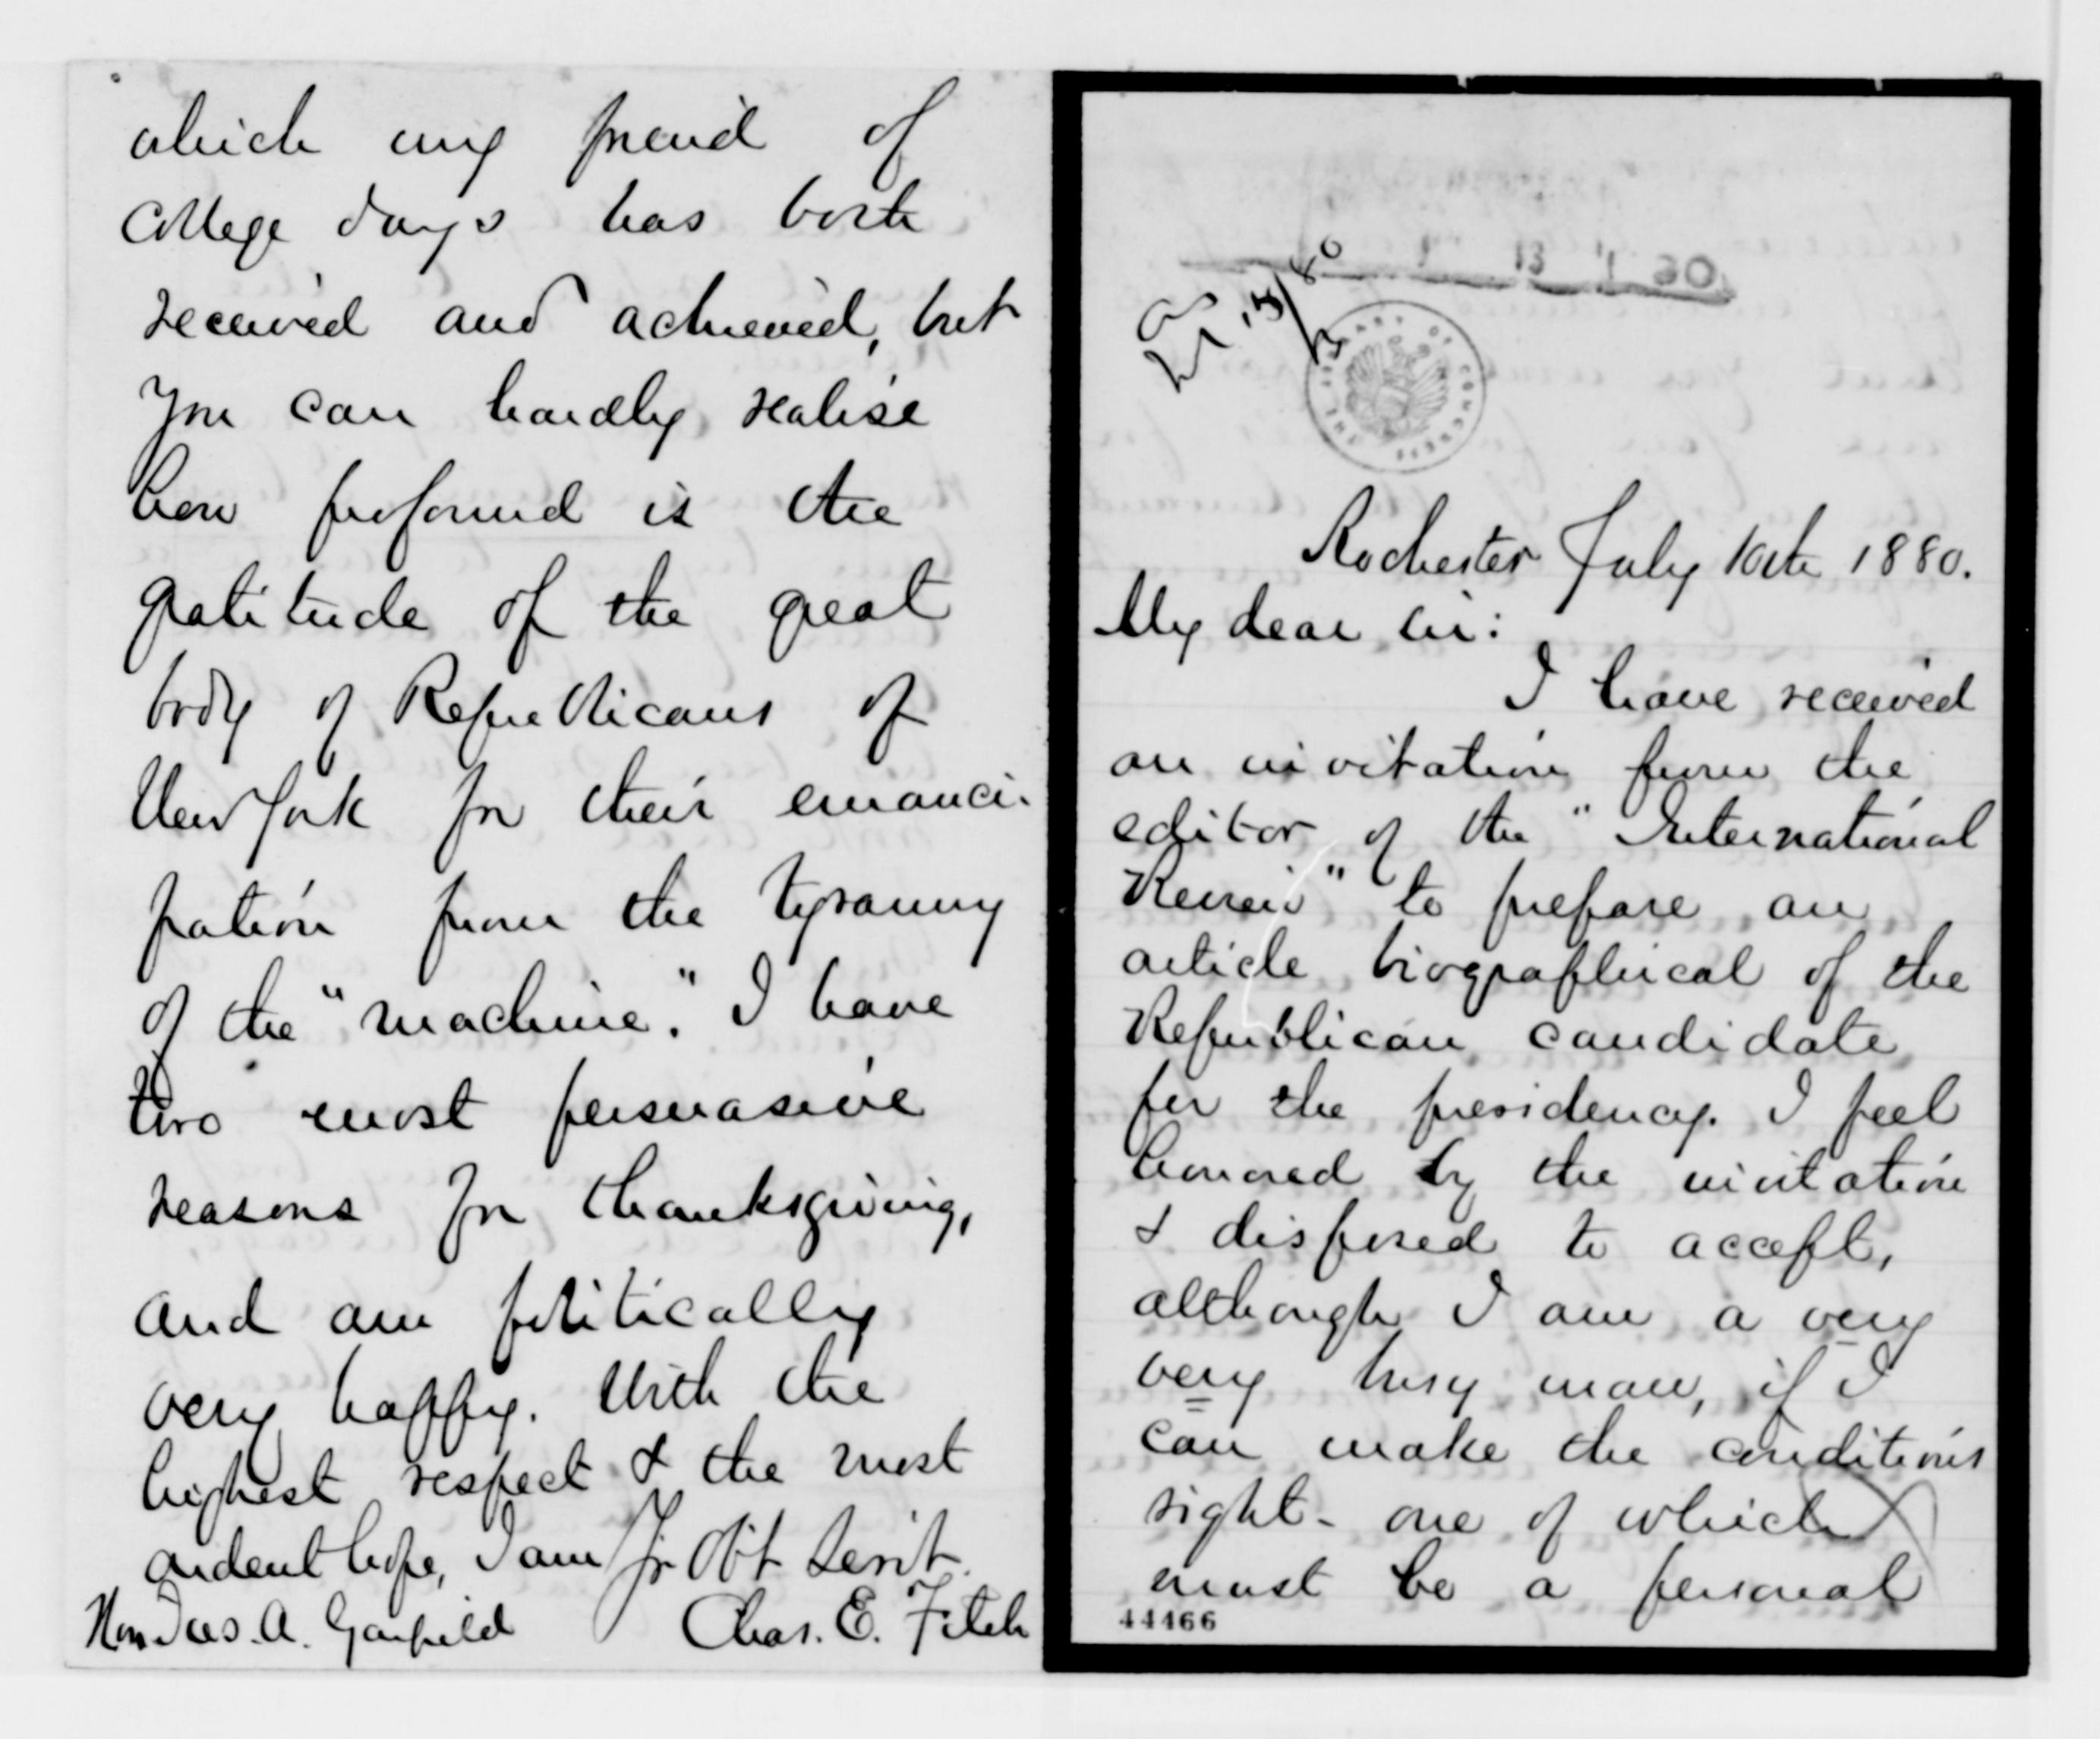 which my friend of
College days has both
received and achieved, but
you can hardly realise
how profound is the
gratitude of the great
body of Republicans of
New York for their emanci-
pation from the tyranny
of the "machine." I have
two most persuasive
reasons for thanksgiving,
and am politically
very happy. With the
highest respect & the most
ardent hope, I am Yr Obt Servt.
Hon Jas. A. Garfield Chas. E. Fitch
13 1 80
THE LIBRARY OF CONGRESS
Rochester July 10th 1880.
My dear Sir:
I have received
an invitation from the
editor of the "International
Review" to prepare an
article biographical of the
Republican candidate
for the presidency. I feel
honored by the invitation
& disposed to accept,
although I am a very
very busy man, if I
can make the conditions
right - one of which
must be a personal
44466